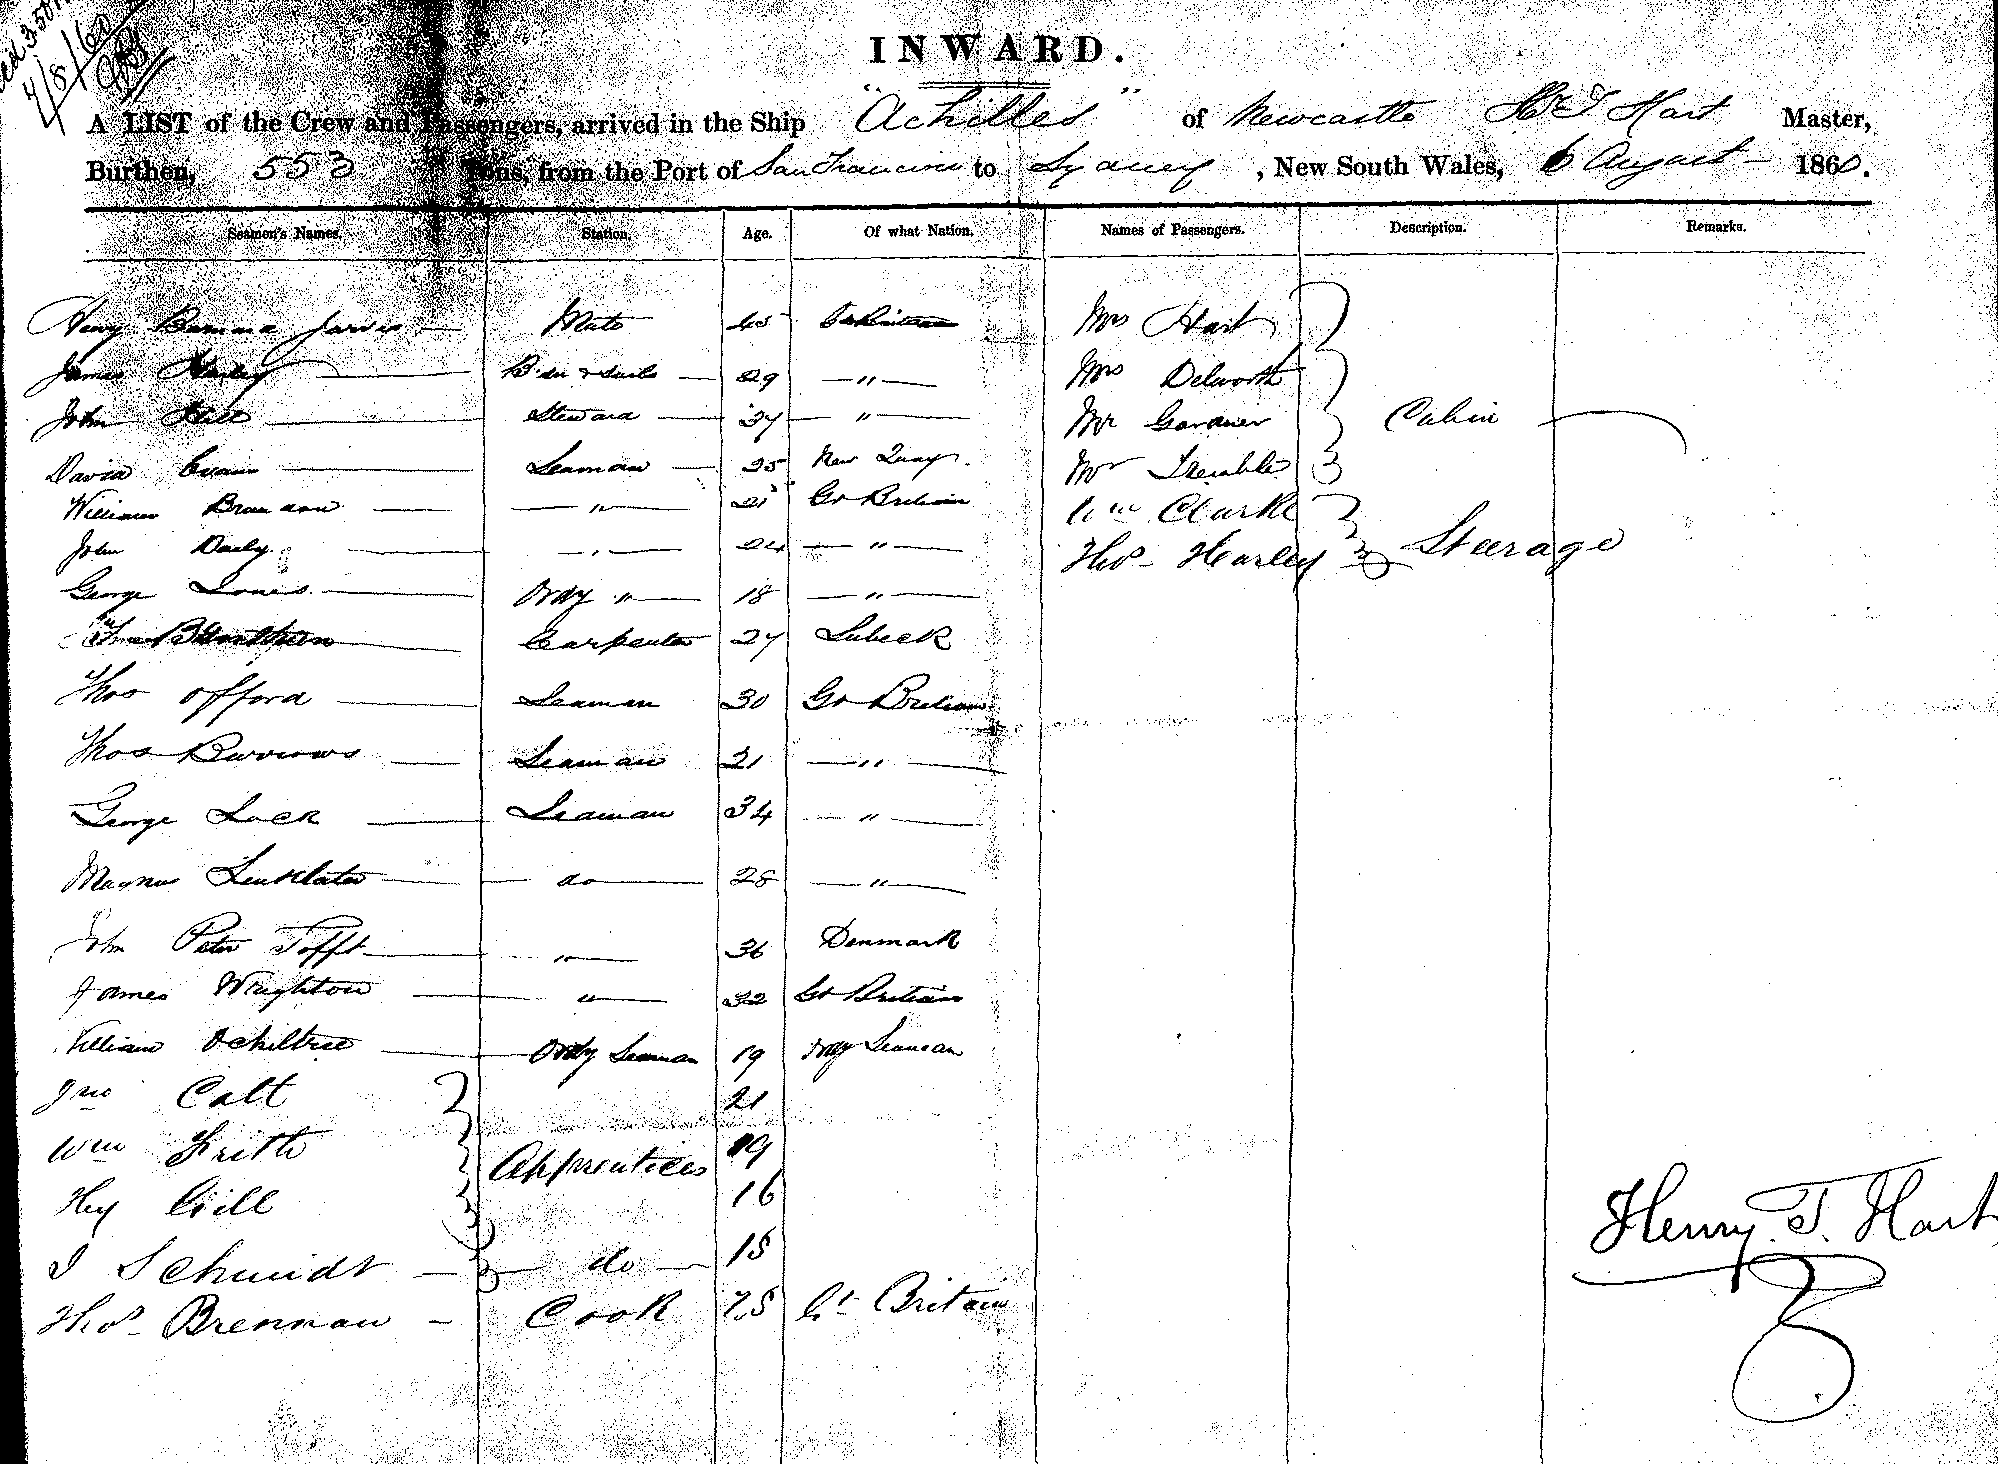 7/8/60
INWARD.
A LIST of the Crew and Passengers, arrived in the Ship "Achilles" of Newcastle H T Hart Master,
Burthen, 553 Tons, from the Port of San Francisco to Sydney, New South Wales, 6 August 1860.
Seamen's Names. Station. Age. Of what Nation. Names of Passengers. Description. Remarks.
Henry Jarvis Mate 45 Gt Britain Mrs Hart
James Harley 29 — " — Mrs Delworth
John Hill Steward 27 — " — Mr Gardner Cabin
David Evans Seaman 25 New Quay. Mr Tremble
William — " — 21 Gt Britain Wm Clarke
John Daily — " — 24 — " — Thos Harley Steerage
George Lewis Ordy " 18 — " —
Carpenter 27 Lubeck
Thos Offord Seaman 30 Gt Britain
Thos Burrows Seaman 21 — " —
George Lock Seaman 34 — " —
Magnus Linklater do 28 — " —
John Peter Tofft " 36 Denmark
James Wrighton " 32 Gt Britain
William Ochiltree Ordy Seaman 19 Ordy Seaman
Jno Catt 21
Wm Frith Apprentices 19
Hy Gill 16
J Schmidt do 15
Thos Brennan Cook 25 Gt Britain
Henry. T. Hart